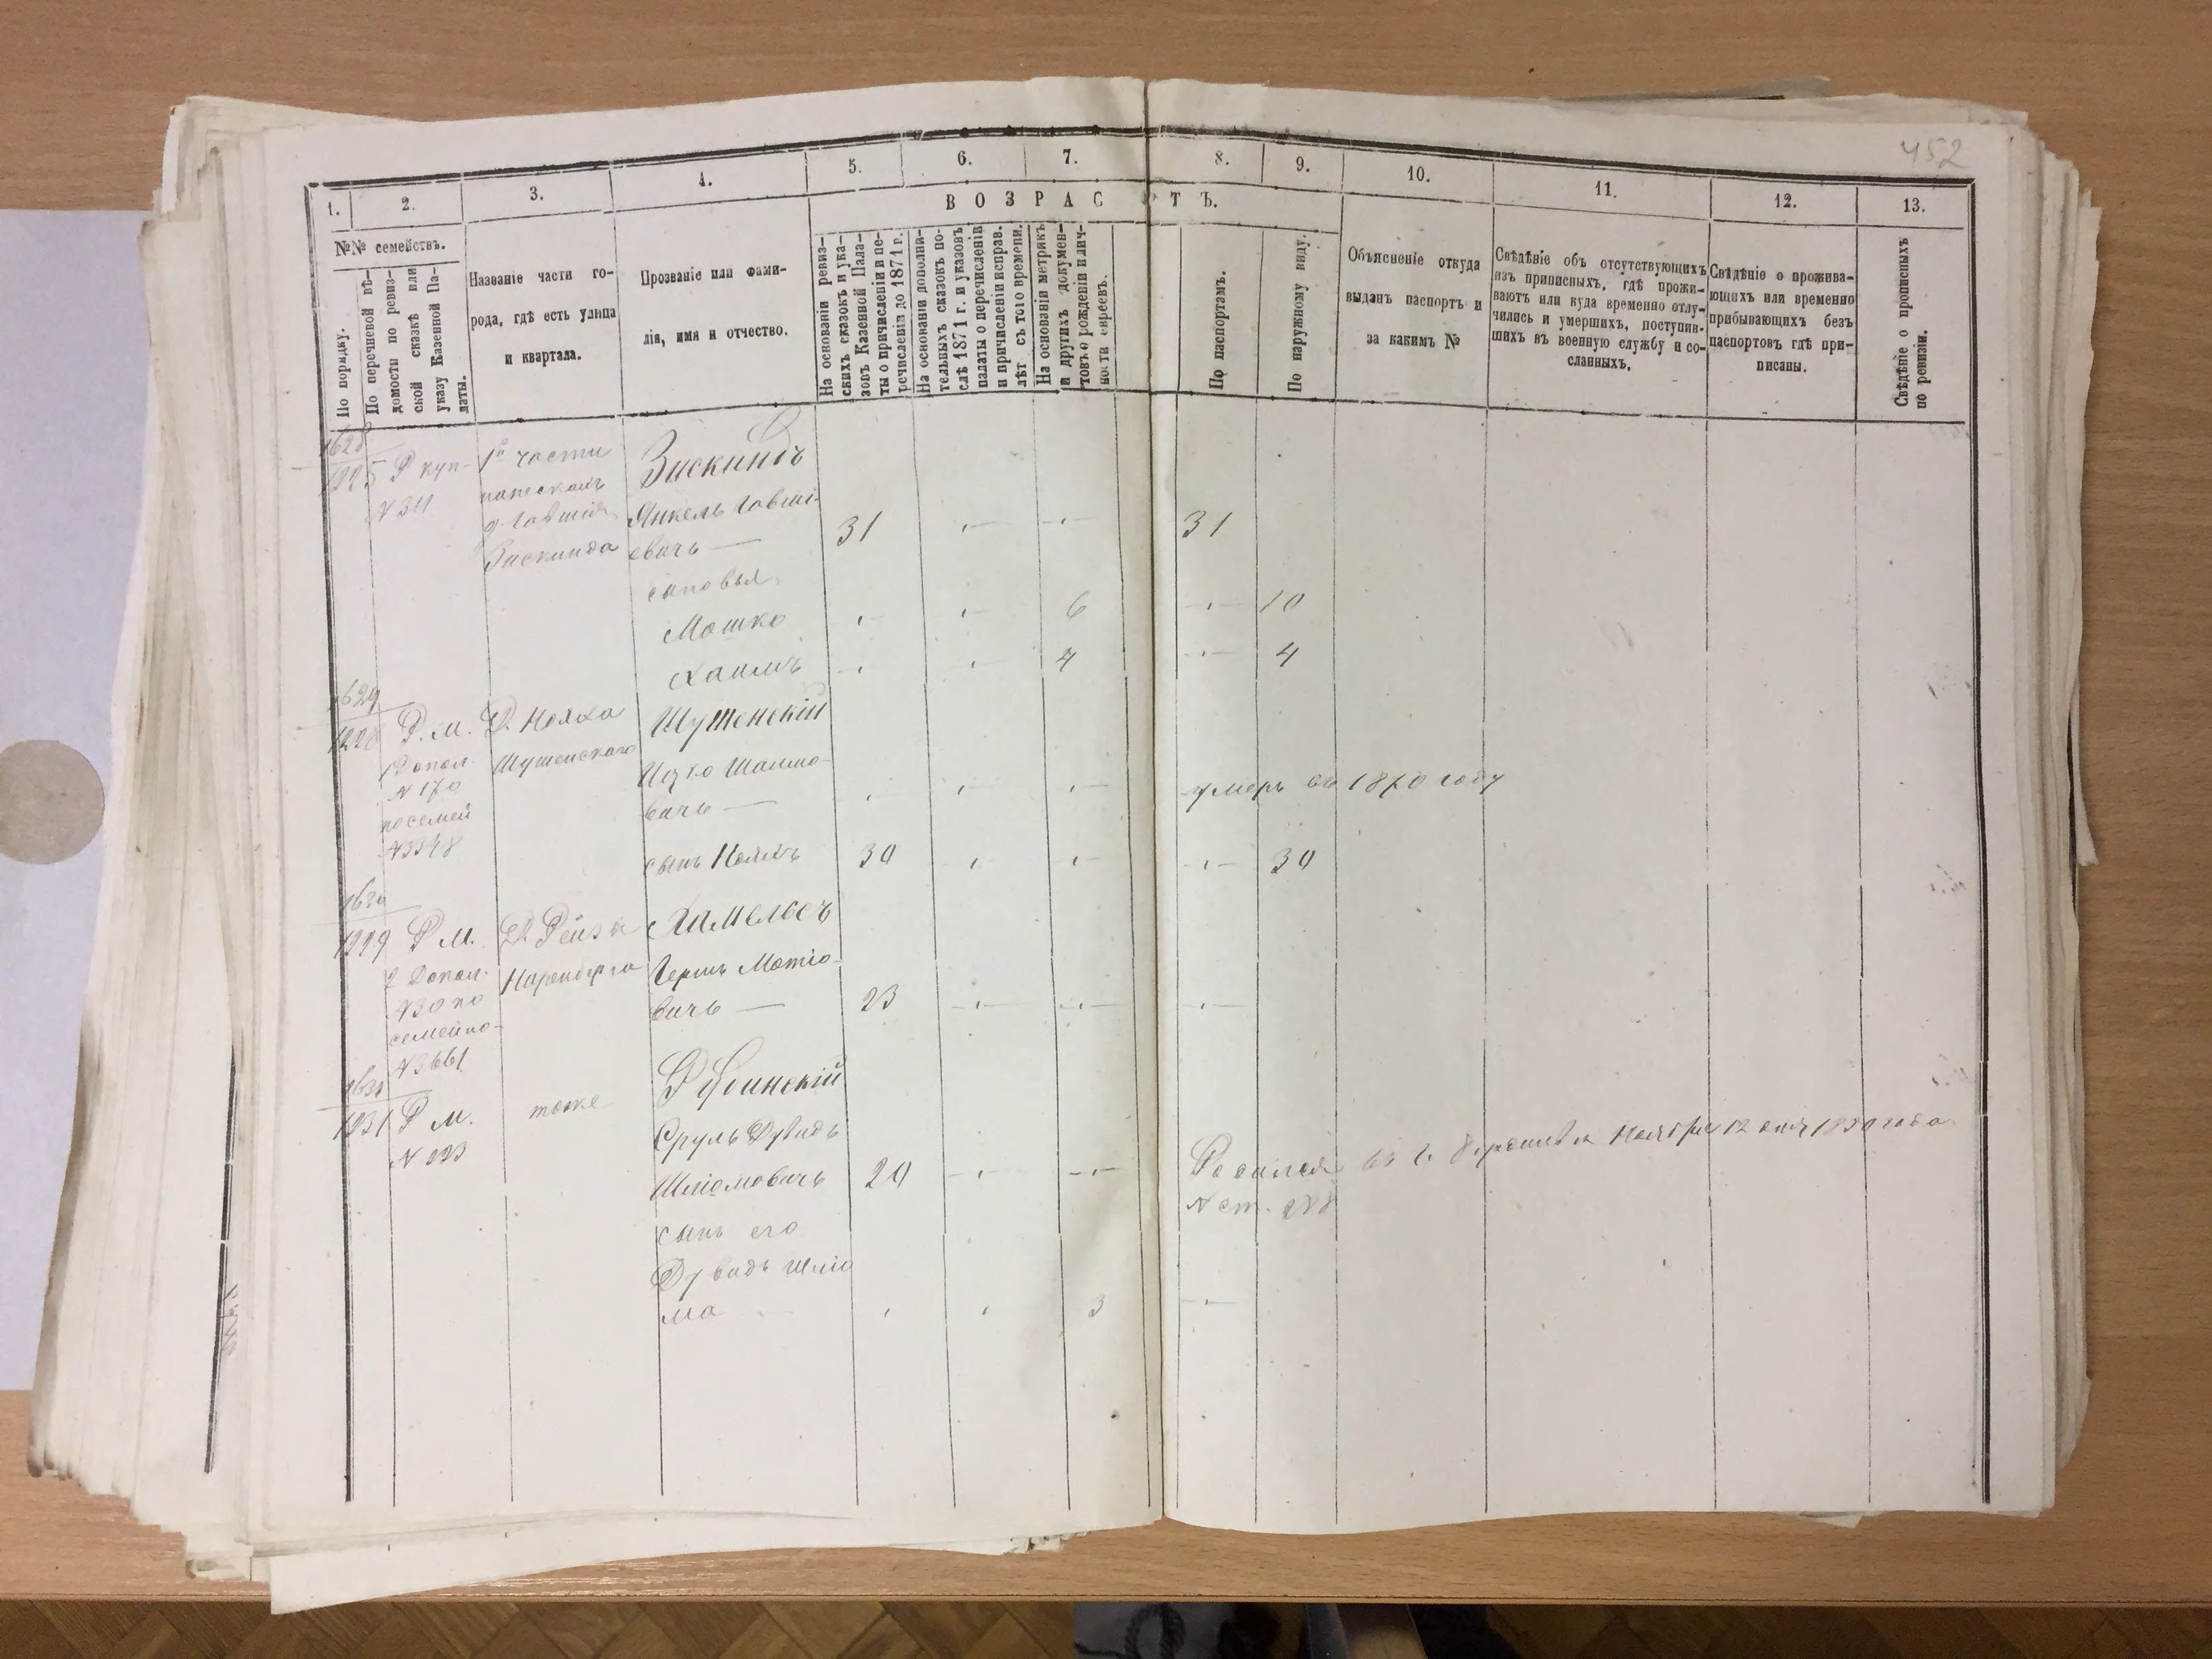 452
1.
2.
3.
4.
5.
6.
7.
8.
9.
10.
11.
12.
13.
ВОЗРАСТЪ.
№№ семействъ.
По порядку.
По перечневой вѣ-
домости по ревиз-
ской сказкѣ или
указу Казенной Па-
латы.
Названіе части го-
рода, гдѣ есть улица
и квартала.
Прозваніе или фами-
лія, имя и отчество.
На основаніи ревиз-
скихъ сказокъ и ука-
зовъ Казенной Пала-
ты о причисленіи и пе-
речисленіи до 1871 г.
На основаніи дополни-
тельныхъ сказокъ по-
слѣ 1871 г. и указовъ
палаты о перечисленіи
и причисленіи исправ.
лѣт съ того времени.
На основаніи метрикъ
и другихъ докумен-
товъ о рожденіи и лич-
ности евреевъ.
По паспортамъ.
По наружному виду.
Объясненіе откуда
выданъ паспортъ и
за какимъ №
Свѣдѣніе объ отсутствующихъ
изъ приписныхъ, гдѣ прожи-
ваютъ или куда временно отлу-
чились и умершихъ, поступив-
шихъ въ военную службу и со-
сланныхъ.
Свѣдѣніе о прожива-
ющихъ или временно
прибывающихъ безъ
паспортовъ гдѣ при-
писаны.
Свѣдѣніе о прописныхъ
по ревизіи.
1628
1225 Р куп- 1й части Зискиндъ
№ 311
д. Говшія Янкель Говші-
Зискинда евичъ — 31 31
сыновья
Мошко 6 10
Хаимъ 4 4
1629
1228 Р. М. Д. Нояха Шушенскій
Допол. Шушенскаго Ицко Шліомо-
№ 170
посемей вичъ — умеръ въ 1870 году
№ 3348 сынъ Нояхъ 30 30
1630
1229 Р М. Д. Рейзы Хмельесъ
2 Допол. Гершъ Мотіо-
№ 30 по вичъ — 23
семейно-
№ 3661
1631 Рубинскій
1231 Р М. тоже
№ 223 Сруль Дувидъ
Шліомовичъ 20 Родился въ г. Ноября 12 дня 1850 года
№ ст. 278
сынъ его
Дувидъ Шліо
ма 3